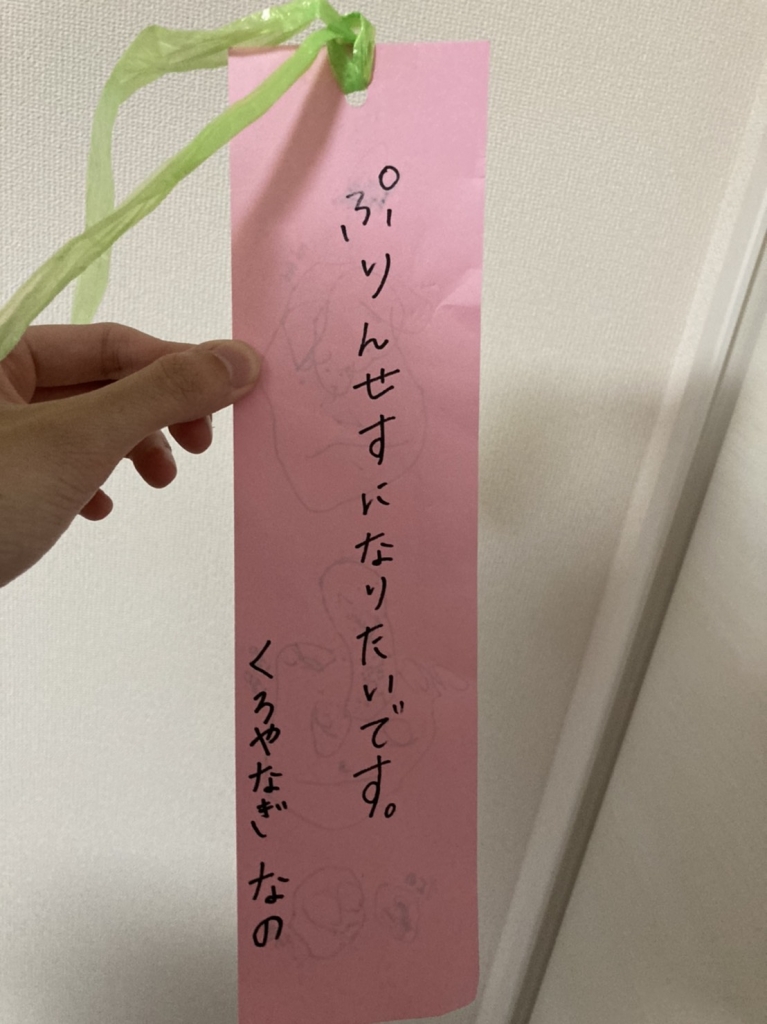 ぷりんせすになりたいです。
くろやなぎ なの